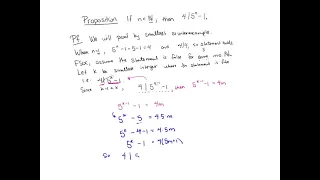 Proposition If n∈ℕ, then 4|5ⁿ-1.
Pf. We will proof by smallest counterexample.
When n=1, 5ⁿ-1=5-1=4 and 4|4, so statement holds
FSOC, assume the statement is false for some n∈ℕ.
Let k be smallest integer where the statement is false
i.e. 4∤5ᵏ-1
Since k-1<k, 4|5ᵏ⁻¹-1, then 5ᵏ⁻¹-1=4m
5ᵏ⁻¹-1=4m
5ᵏ-5=4·5m
5ᵏ-4-1=4·5m
5ᵏ-1=4(5m+1)
So 4|5